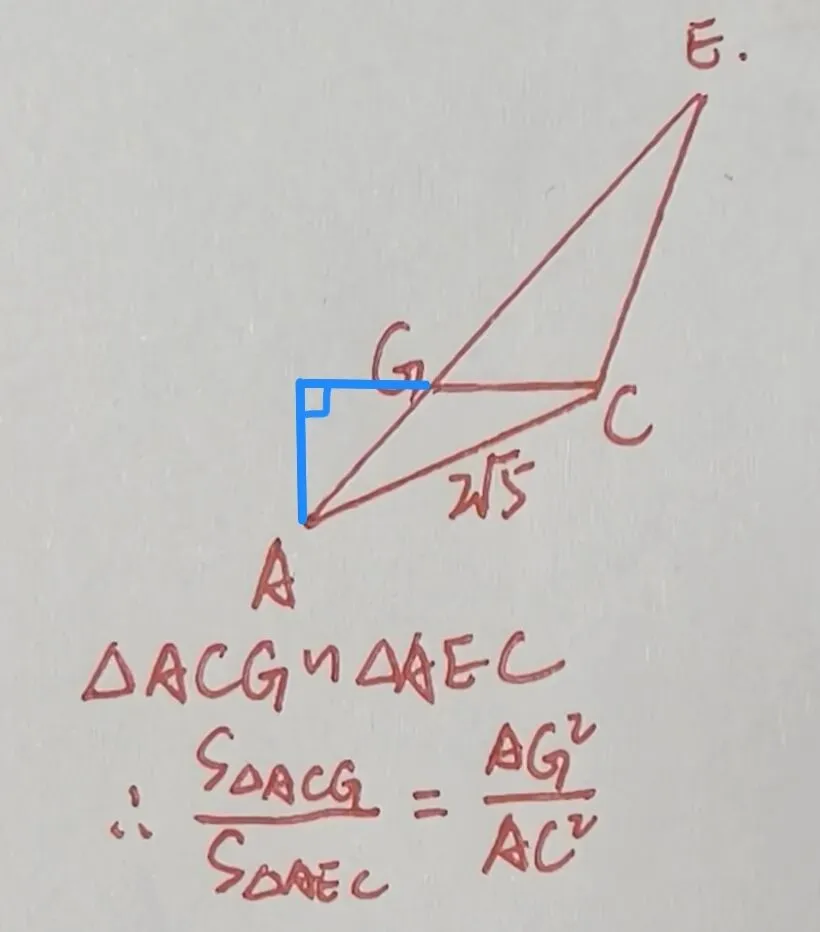 E.
G
C
2√5
A
△ACG∽△AEC
∴ S△ACG / S△AEC = AG² / AC²